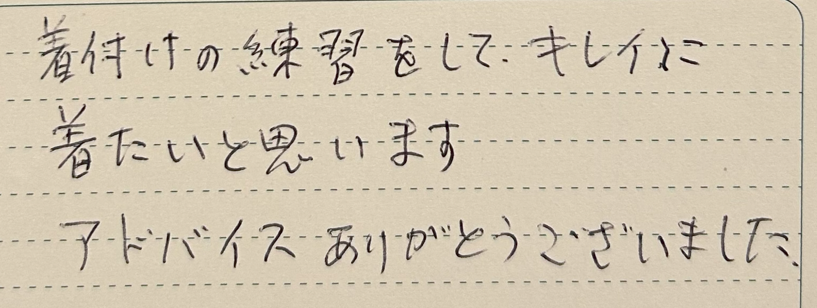 着付けの練習をして、キレイに
着たいと思います
アドバイスありがとうございました。